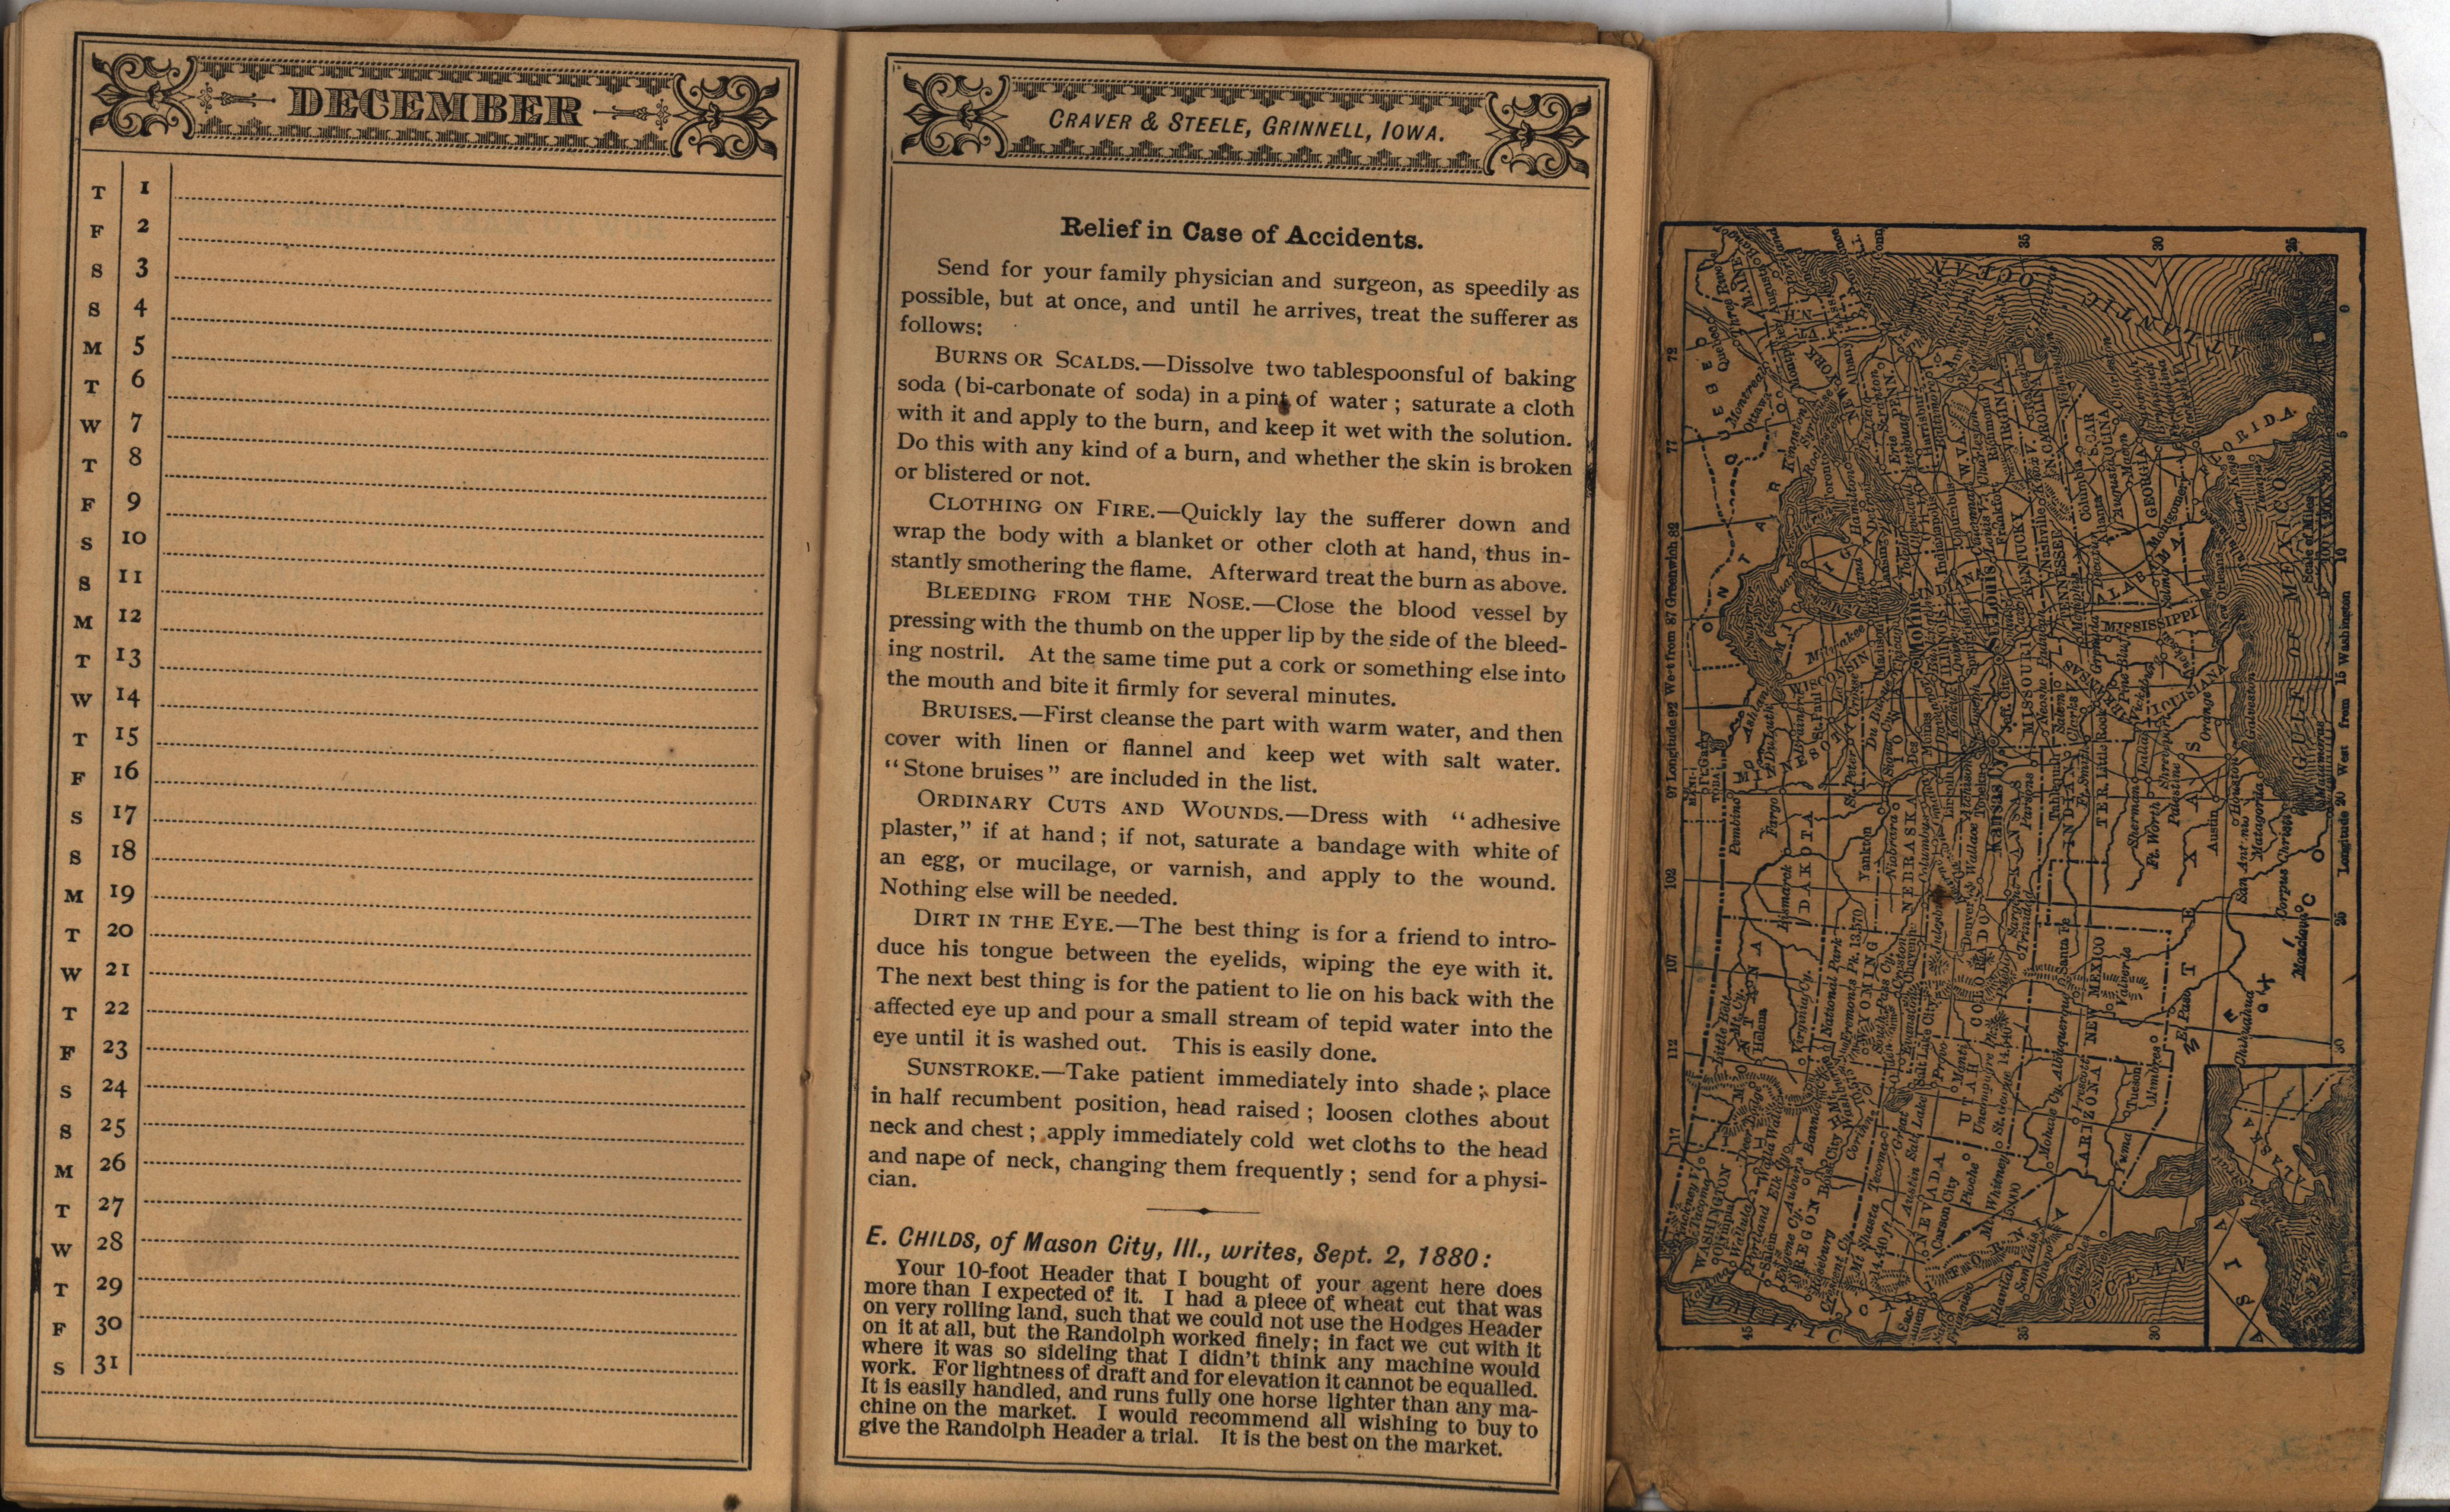 DECEMBER
T 1
F 2
S 3
S 4
M 5
T 6
W 7
T 8
F 9
S 10
S 11
M 12
T 13
W 14
T 15
F 16
S 17
S 18
M 19
T 20
W 21
T 22
F 23
S 24
S 25
M 26
T 27
W 28
T 29
F 30
S 31
CRAVER & STEELE, GRINNELL, IOWA.
Relief in Case of Accidents.
Send for your family physician and surgeon, as speedily as
possible, but at once, and until he arrives, treat the sufferer as
follows:
BURNS OR SCALDS.—Dissolve two tablespoonsful of baking
soda (bi-carbonate of soda) in a pint of water; saturate a cloth
with it and apply to the burn, and keep it wet with the solution.
Do this with any kind of a burn, and whether the skin is broken
or blistered or not.
CLOTHING ON FIRE.—Quickly lay the sufferer down and
wrap the body with a blanket or other cloth at hand, thus in-
stantly smothering the flame. Afterward treat the burn as above.
BLEEDING FROM THE NOSE.—Close the blood vessel by
pressing with the thumb on the upper lip by the side of the bleed-
ing nostril. At the same time put a cork or something else into
the mouth and bite it firmly for several minutes.
BRUISES.—First cleanse the part with warm water, and then
cover with linen or flannel and keep wet with salt water.
"Stone bruises" are included in the list.
ORDINARY CUTS AND WOUNDS.—Dress with "adhesive
plaster," if at hand; if not, saturate a bandage with white of
an egg, or mucilage, or varnish, and apply to the wound.
Nothing else will be needed.
DIRT IN THE EYE.—The best thing is for a friend to intro-
duce his tongue between the eyelids, wiping the eye with it.
The next best thing is for the patient to lie on his back with the
affected eye up and pour a small stream of tepid water into the
eye until it is washed out. This is easily done.
SUNSTROKE.—Take patient immediately into shade; place
in half recumbent position, head raised; loosen clothes about
neck and chest; apply immediately cold wet cloths to the head
and nape of neck, changing them frequently; send for a physi-
cian.
E. CHILDS, of Mason City, Ill., writes, Sept. 2, 1880:
Your 10-foot Header that I bought of your agent here does
more than I expected of it. I had a piece of wheat cut that was
on very rolling land, such that we could not use the Hodges Header
on it at all, but the Randolph worked finely; in fact we cut with it
where it was so sideling that I didn't think any machine would
work. For lightness of draft and for elevation it cannot be equalled.
It is easily handled, and runs fully one horse lighter than any ma-
chine on the market. I would recommend all wishing to buy to
give the Randolph Header a trial. It is the best on the market.
97 Longitude 92 West from 87 Greenwich 82
77
72
102
107
112
117
WASHINGTON
OREGON
NEVADA
UTAH
ARIZONA
NEW MEXICO
COLORADO
WYOMING
MONTANA
DAKOTA
NEBRASKA
KANSAS
INDIAN
TER.
TEXAS
MISSOURI
TENNESSEE
KENTUCKY
MISSISSIPPI
ALABAMA
GEORGIA
FLORIDA
N. CAROLINA
VIRGINIA
W. VA.
PENN.
NEW YORK
MAINE
ONTARIO
QUEBEC
Moline
St. Louis
Kansas Cy.
Bismarck
Fargo
Pembina
Yankton
Helena
Santa Fe
El Paso
Austin
Galveston
Carson City
Pioche
Tucson
Yuma
Chihuahua
Monclova
Corpus Christi
Matamoras
ATLANTIC OCEAN
GULF OF MEXICO
PACIFIC OCEAN
MEXICO
ALASKA
ASIA
Scale of Miles
Longitude 20 West from 15 Washington